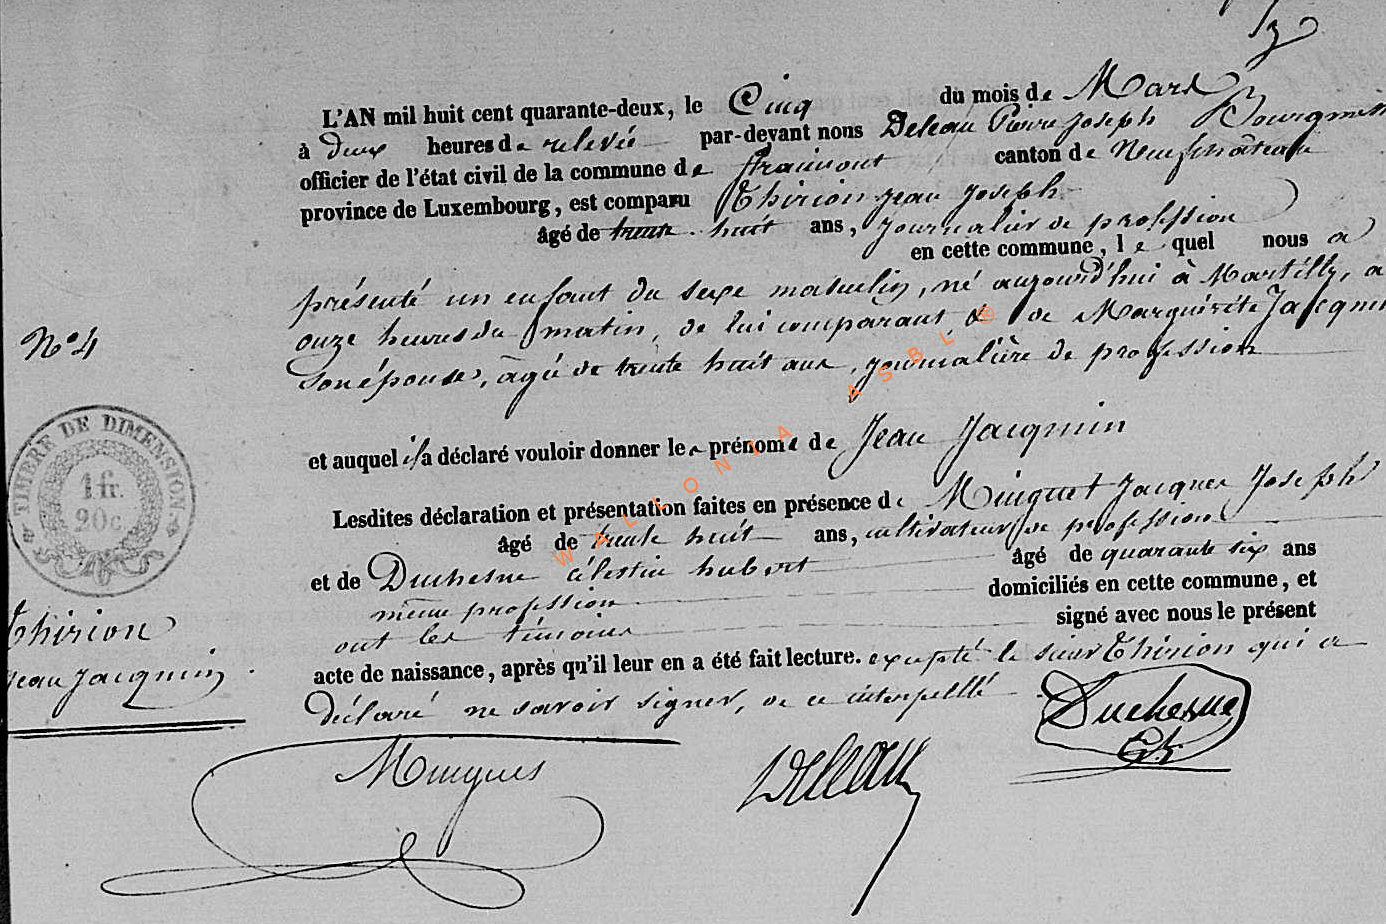 L'AN mil huit cent quarante-deux, le Cinq du mois de Mars
à deux heures de relevée par-devant nous Deleau Pierre Joseph Bourgmestre
officier de l'état civil de la commune de Straimont canton de Neufchâteau
province de Luxembourg, est comparu Thirion Jean Joseph
âgé de trente huit ans, journalier de profession
en cette commune, le quel nous a
présenté un enfant du sexe masculin, né aujourd'hui à Martilly, a
onze heures du matin, de lui comparant & de Marguérite Jacqmin
son épouse, agée de trente huit ans, journalière de profession
N° 4
et auquel il a déclaré vouloir donner les prénoms de Jean Jacqmin
TIMBRE DE DIMENSION
1 fr.
20 c.
Lesdites déclaration et présentation faites en présence de Minguet Jacques Joseph
âgé de trente huit ans, cultivateur de profession
et de Duchesne célestin hubert âgé de quarante six ans
même profession domiciliés en cette commune, et
ont les témoins signé avec nous le présent
acte de naissance, après qu'il leur en a été fait lecture. excepté le sieur Thirion qui a
déclaré ne savoir signer, de ce interpellé
Thirion
Jean Jacqmin
Duchesne
Deleau
WALLONIA ASBL ©